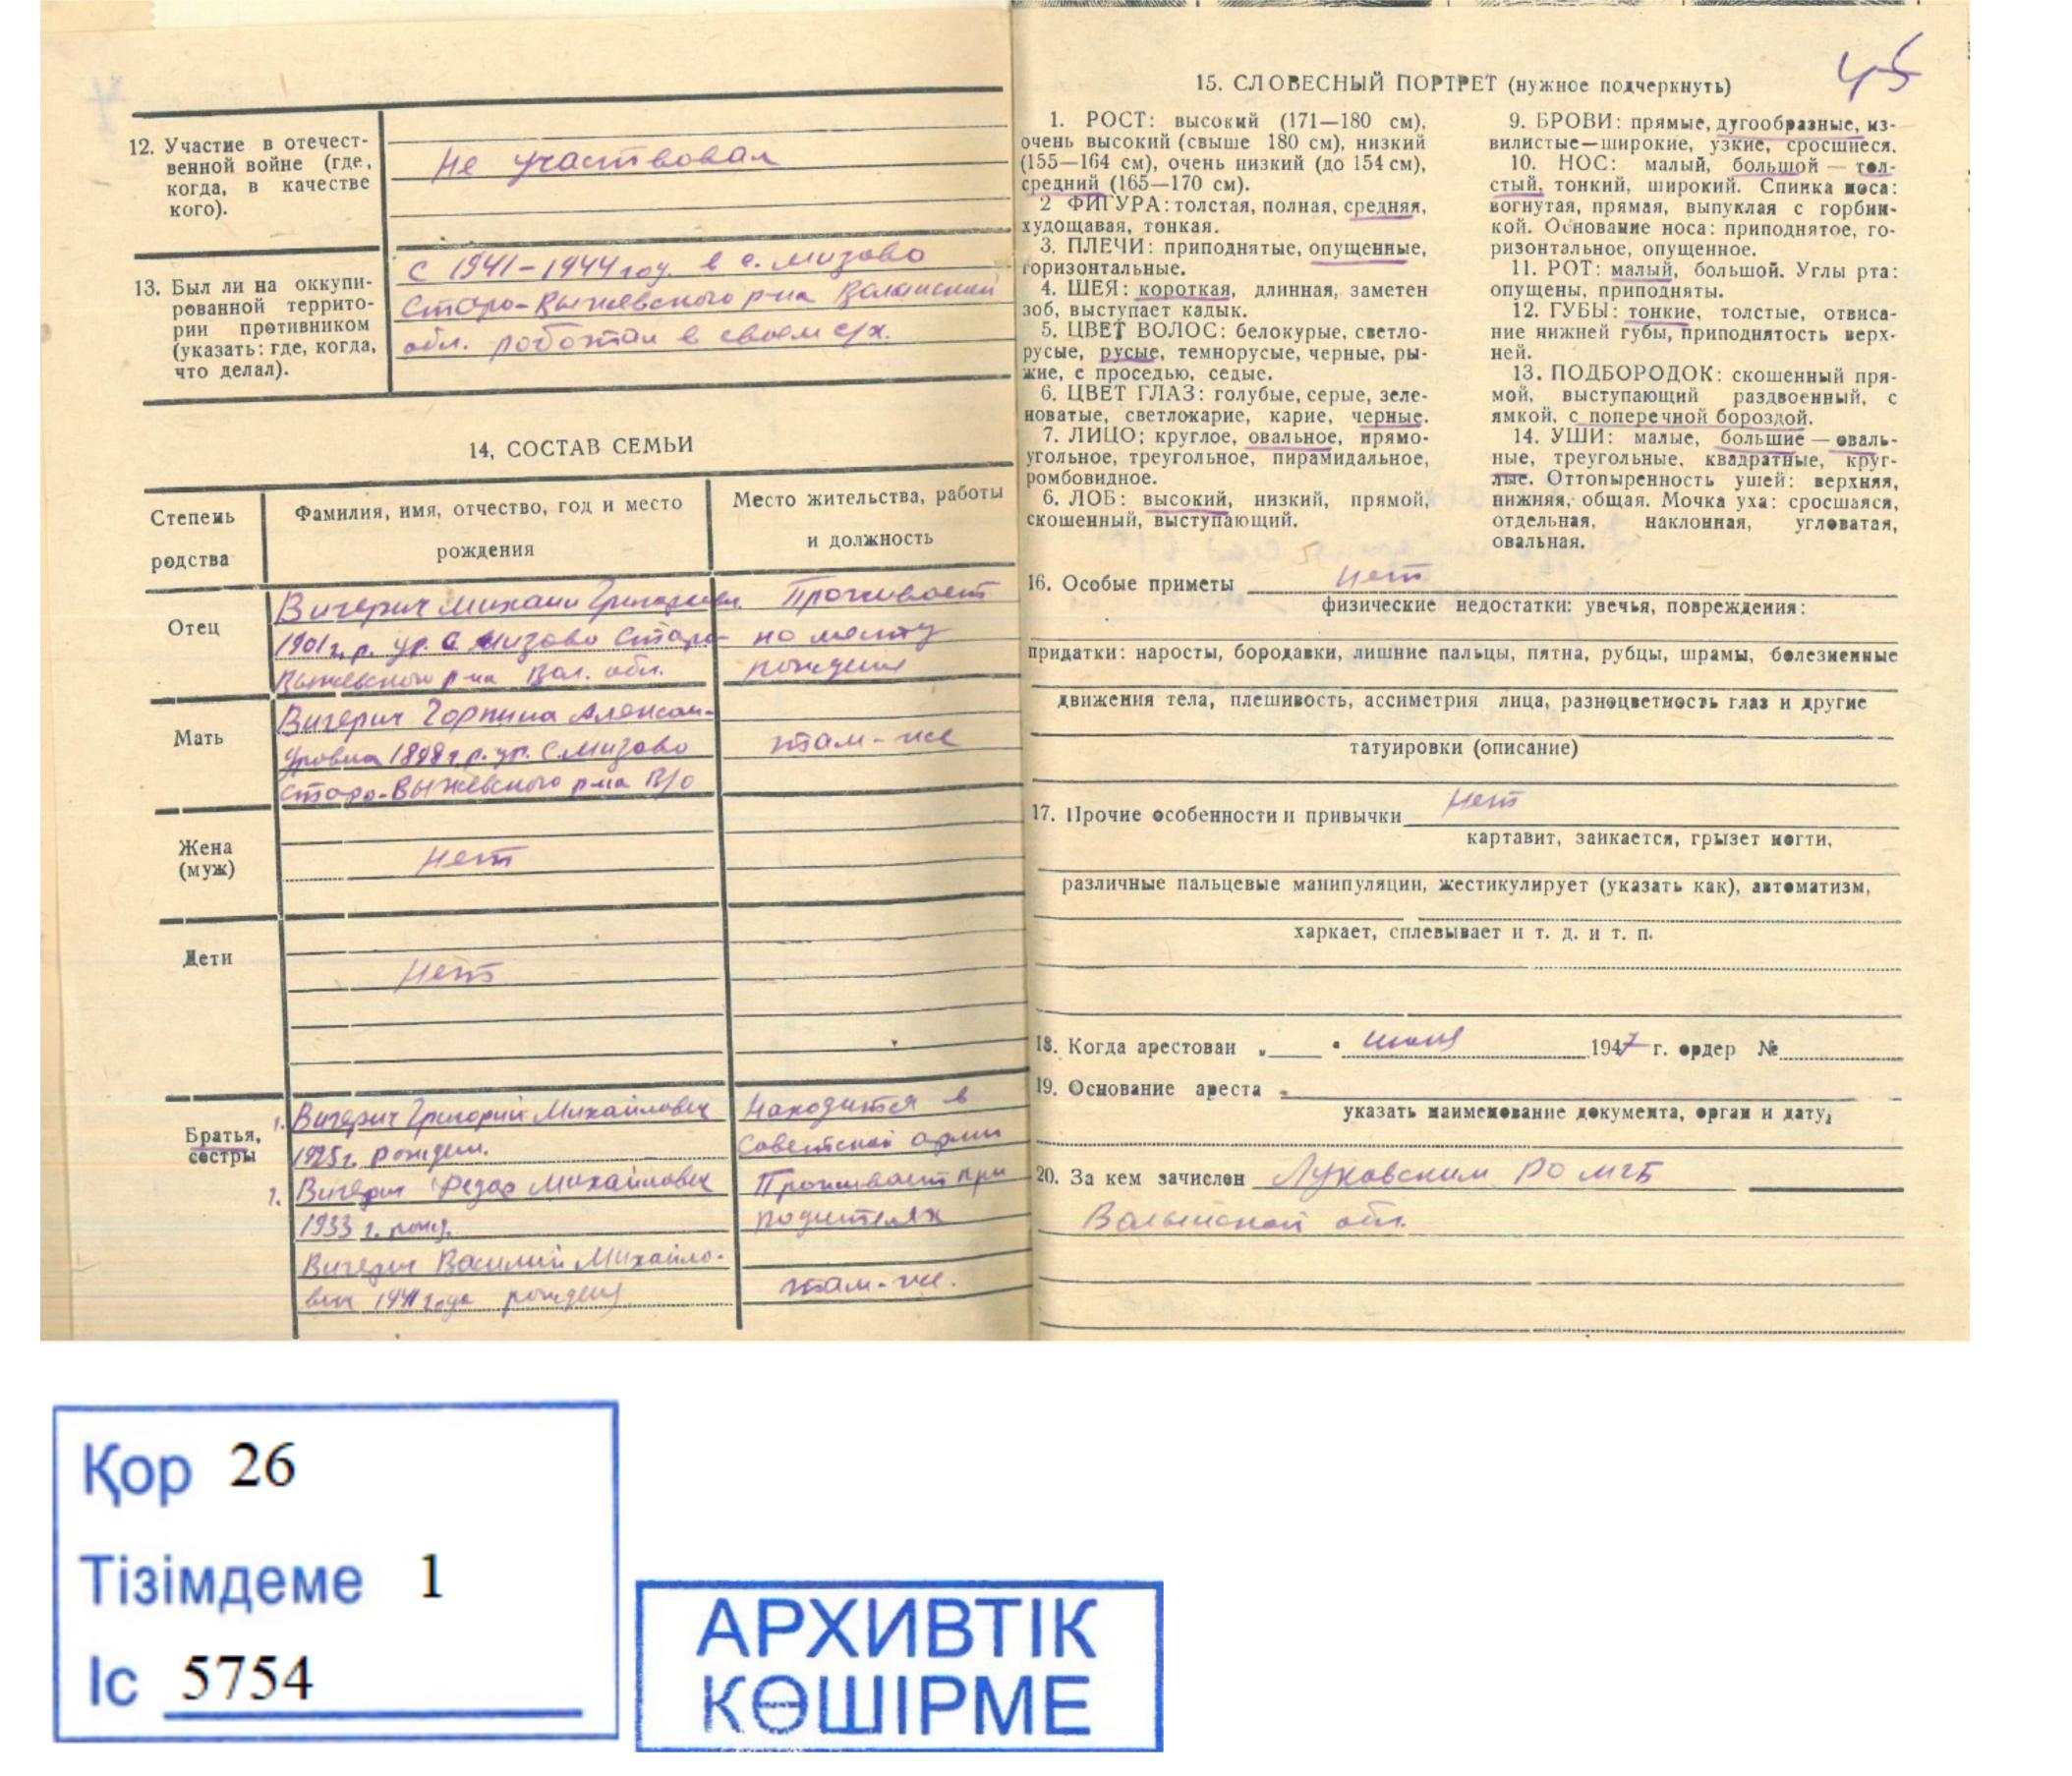 45
12. Участие в отечест-
венной войне (где,
когда, в качестве
кого).
Не участвовал
13. Был ли на оккупи-
рованной террито-
рии противником
(указать: где, когда,
что делал).
С 1941-1944 год. в с. Мизово
Старо-Выжевского р-на
обл. работал в своем с/х.
14, СОСТАВ СЕМЬИ
Степень
родства
Фамилия, имя, отчество, год и место
рождения
Место жительства, работы
и должность
Отец
Вигерич Михаил
1901 г.р. ур. с Мизово Старо-
Выжевского р-на Вол. обл.
Проживает
по месту
рождения
Мать
Вигерич Горпина Алексан-
дровна 1898 г.р. ур. С. Мизово
Старо-Выжевского р-на В/о
там-же
Жена
(муж)
нет
Дети
нет
Братья,
сестры
1. Вигерич Григорий Михайлович
1925 г. рожден.
Находится в
Советской армии
2. Вигерич Федор Михайлович
1933 г. рожд.
Проживает при
родителях
Вигерич Василий Михайло-
вич 1941 года рождения
там-же.
15. СЛОВЕСНЫЙ ПОРТРЕТ (нужное подчеркнуть)
1. РОСТ: высокий (171—180 см),
очень высокий (свыше 180 см), низкий
(155—164 см), очень низкий (до 154 см),
средний (165—170 см).
2 ФИГУРА: толстая, полная, средняя,
худощавая, тонкая.
3. ПЛЕЧИ: приподнятые, опущенные,
горизонтальные.
4. ШЕЯ: короткая, длинная, заметен
зоб, выступает кадык.
5. ЦВЕТ ВОЛОС: белокурые, светло-
русые, русые, темнорусые, черные, ры-
жие, с проседью, седые.
6. ЦВЕТ ГЛАЗ: голубые, серые, зеле-
новатые, светлокарие, карие, черные.
7. ЛИЦО; круглое, овальное, прямо-
угольное, треугольное, пирамидальное,
ромбовидное.
6. ЛОБ: высокий, низкий, прямой,
скошенный, выступающий.
9. БРОВИ: прямые, дугообразные, из-
вилистые—широкие, узкие, сросшиеся.
10. НОС: малый, большой — тол-
стый, тонкий, широкий. Спинка носа:
вогнутая, прямая, выпуклая с горбин-
кой. Основание носа: приподнятое, го-
ризонтальное, опущенное.
11. РОТ: малый, большой. Углы рта:
опущены, приподняты.
12. ГУБЫ: тонкие, толстые, отвиса-
ние нижней губы, приподнятость верх-
ней.
13. ПОДБОРОДОК: скошенный пря-
мой, выступающий раздвоенный, с
ямкой, с поперечной бороздой.
14. УШИ: малые, большие — оваль-
ные, треугольные, квадратные, круг-
лые. Оттопыренность ушей: верхняя,
нижняя, общая. Мочка уха: сросшаяся,
отдельная, наклонная, угловатая,
овальная.
16. Особые приметы нет
физические недостатки: увечья, повреждения:
придатки: наросты, бородавки, лишние пальцы, пятна, рубцы, шрамы, болезненные
движения тела, плешивость, ассиметрия лица, разноцветность глаз и другие
татуировки (описание)
17. Прочие особенности и привычки нет
картавит, заикается, грызет ногти,
различные пальцевые манипуляции, жестикулирует (указать как), автоматизм,
харкает, сплевывает и т. д. и т. п.
18. Когда арестован „ “ 1947 г. ордер №
19. Основание ареста
указать наименование документа, орган и дату,
20. За кем зачислен Луковским РО МГБ
Волынской обл.
Қор 26
Тізімдеме 1
Іс 5754
АРХИВТІК
КӨШІРМЕ